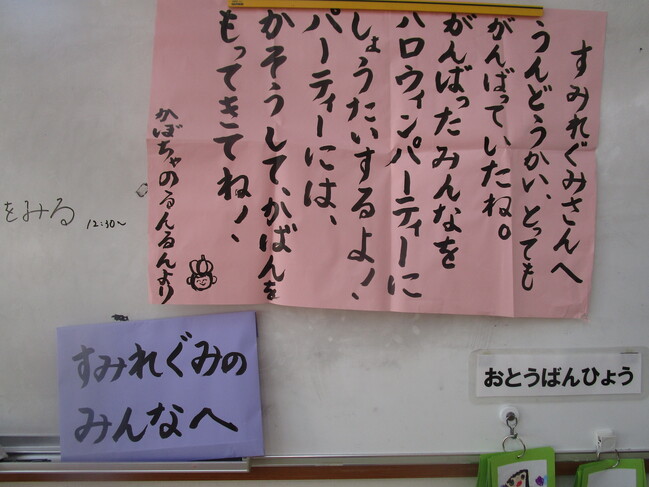 すみれぐみさんへ
うんどうかい、とっても
がんばって、いたね。
がんばったみんなを
ハロウィンパーティーに
しょうたいするよ！、
パーティーには、
かそうして、かばんを
もってきてね！、
かぼちゃのるんるんより
をみる
12:30〜
すみれぐみの
みんなへ
おとうばんひょう